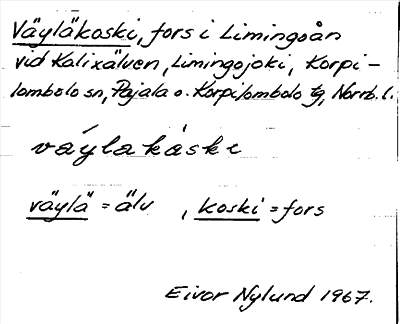 Väyläkoski, fors i Limingoån
vid Kalixälven, Limingojoki, Korpi-
lombolo sn, Pajala o. Korpilombolo tg, Norrb. l.
váylakáski
väylä = älv, koski = fors
Eivor Nylund 1967.